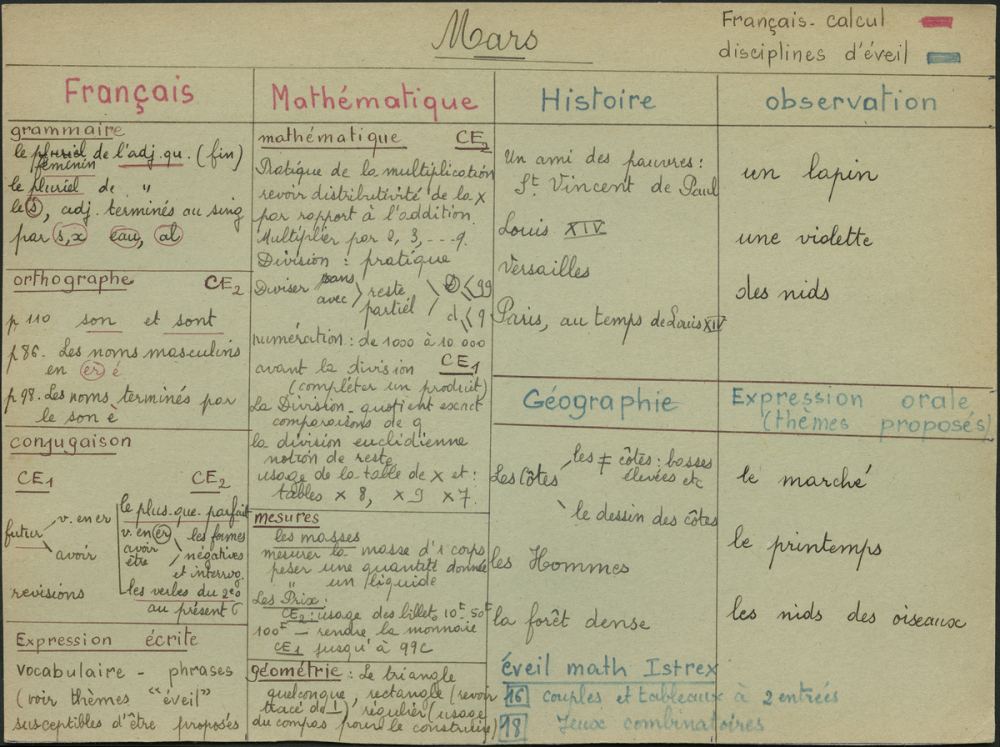 Mars
Français - calcul
disciplines d'éveil
Français
grammaire
le pluriel de l'adj. qu. (fin)
féminin
le pluriel de "
le s, adj. terminés au sing
par s, x eau, al
orthographe CE2
p 110 son et sont
p 86. Les noms masculins
en er é
p 98. Les noms terminés par
le son è
conjugaison
CE1 CE2
futur
v. en er
avoir
révisions
le plus-que-parfait
v. en er
avoir
être
les formes
négatives
et interrog.
les verbes du 2e g
au présent
Expression écrite
vocabulaire - phrases
(voir thèmes "éveil"
susceptibles d'être proposés
Mathématique
mathématique CE2
Pratique de la multiplication
revoir distributivité de la x
par rapport à l'addition.
Multiplier par 2, 3, ---9.
Division : pratique
Diviser
sans
avec
reste
partiel
D < 99
d < 9
numération : de 1000 à 10 000
avant la division CE1
(compléter un produit)
La Division - quotient exact
comparaisons de q
la division euclidienne
notion de reste
usage de la table de x et :
tables x 8, x 9 x 7.
mesures
les masses
mesurer la masse d'1 corps
peser une quantité donnée
" un liquide
Les Prix :
CE2 : usage des billets 10F 50F
100F - rendre la monnaie
CE1 jusqu'à 99C
géométrie : Le triangle
quelconque, rectangle (revoir
tracé de ⊥), régulier (usage
du compas pour le construire)
Histoire
Un ami des pauvres :
St Vincent de Paul
Louis XIV
Versailles
Paris, au temps de Louis XIV
Géographie
Les côtes
les ≠ côtes : basses
élevées etc
le dessin des côtes
les Hommes
la forêt dense
éveil math Istrex
16 couples et tableaux à 2 entrées
18 Jeux combinatoires
observation
un lapin
une violette
des nids
Expression orale
(thèmes proposés)
le marché
le printemps
les nids des oiseaux